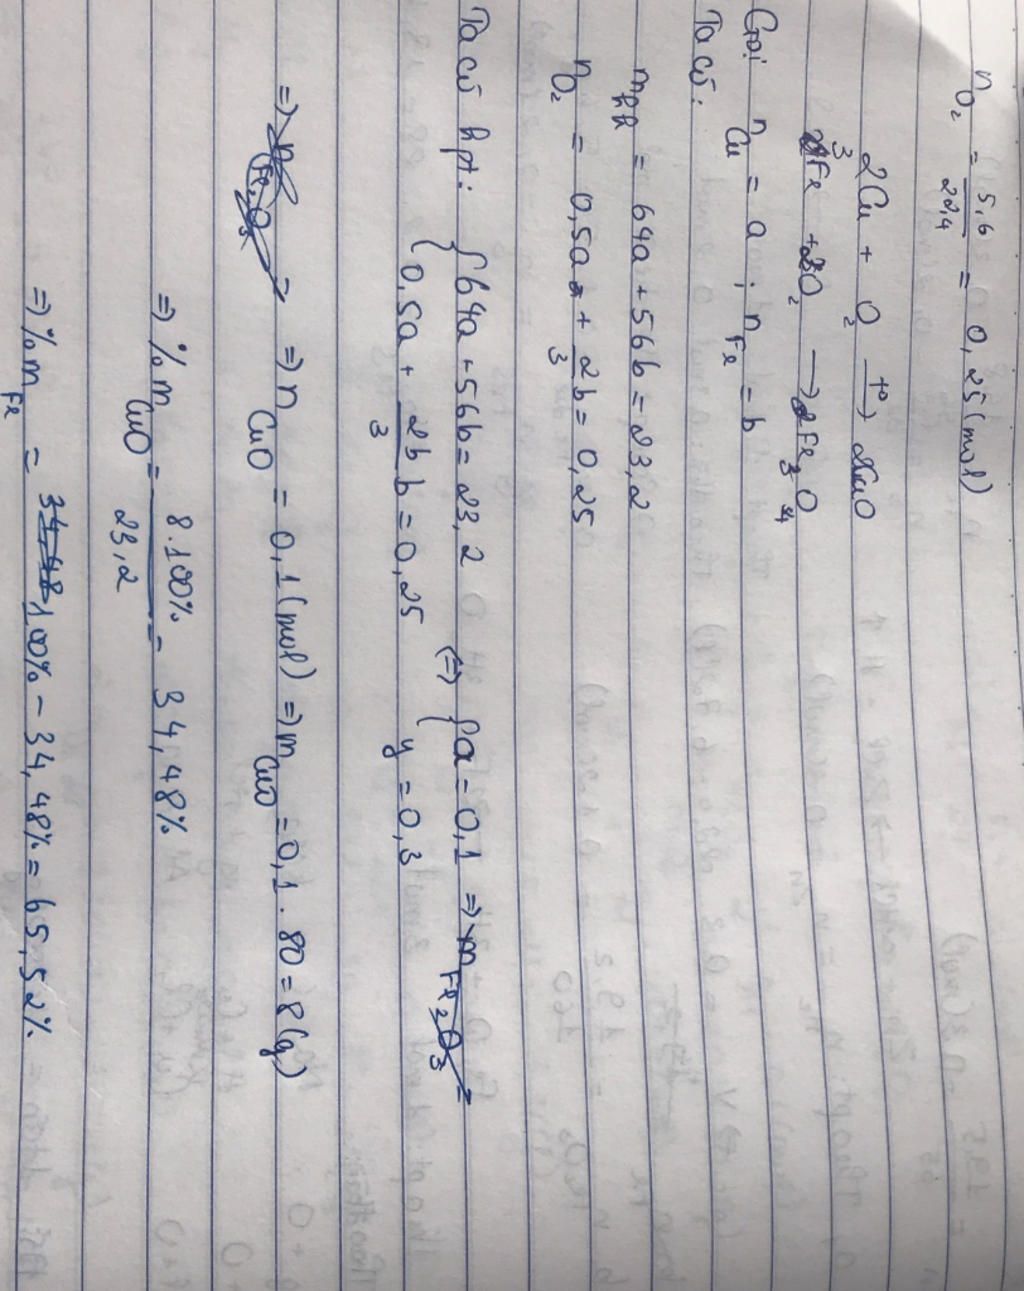 n O₂ = 5,6/22,4 = 0,25 (mol)
2Cu + O₂ →t° 2CuO
3Fe + 2O₂ → Fe₃O₄
Gọi n Cu = a ; n Fe = b
Ta có:
m hh = 64a + 56b = 23,2
n O₂ = 0,5a + 2/3 b = 0,25
Ta có hpt: { 64a + 56b = 23,2 (=) { a = 0,1 => m Fe₂O₃ =
{ 0,5a + 2b/3 b = 0,25 y = 0,3
=> n Fe₂O₃ = => n CuO = 0,1 (mol) => m CuO = 0,1 . 80 = 8 (g)
=> % m CuO = 8.100%/23,2 = 34,48%
=> % m Fe = 34,48 100% - 34,48% = 65,52%